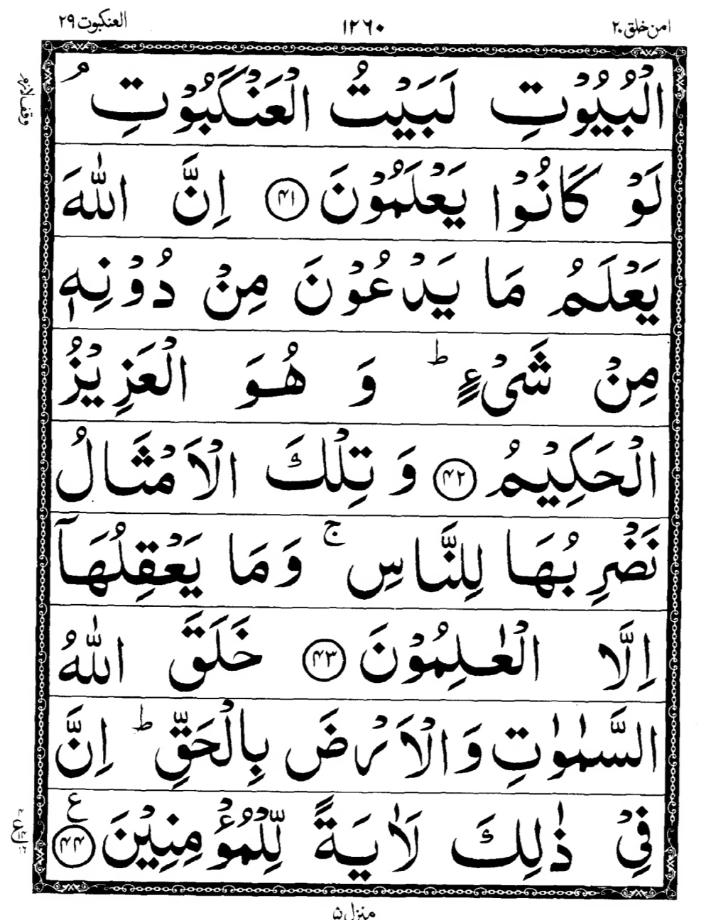 امن خلق ۲۰
۱۲۶۰
العنکبوت ۲۹
الْبُيُوْتِ لَبَيْتُ الْعَنْكَبُوْتِ ۘ
وقف لازم
لَوْ كَانُوْا يَعْلَمُوْنَ ﴿۴۱﴾ اِنَّ اللّٰهَ
يَعْلَمُ مَا يَدْعُوْنَ مِنْ دُوْنِهٖ
مِنْ شَيْءٍ ؕ وَ هُوَ الْعَزِيْزُ
الْحَكِيْمُ ﴿۴۲﴾ وَ تِلْكَ الْاَمْثَالُ
نَضْرِبُهَا لِلنَّاسِ ۚ وَمَا يَعْقِلُهَاۤ
اِلَّا الْعٰلِمُوْنَ ﴿۴۳﴾ خَلَقَ اللّٰهُ
السَّمٰوٰتِ وَالْاَرْضَ بِالْحَقِّ ؕ اِنَّ
فِيْ ذٰلِكَ لَاٰيَةً لِّلْمُؤْمِنِيْنَ ﴿۴۴﴾ ع
منزل ۵